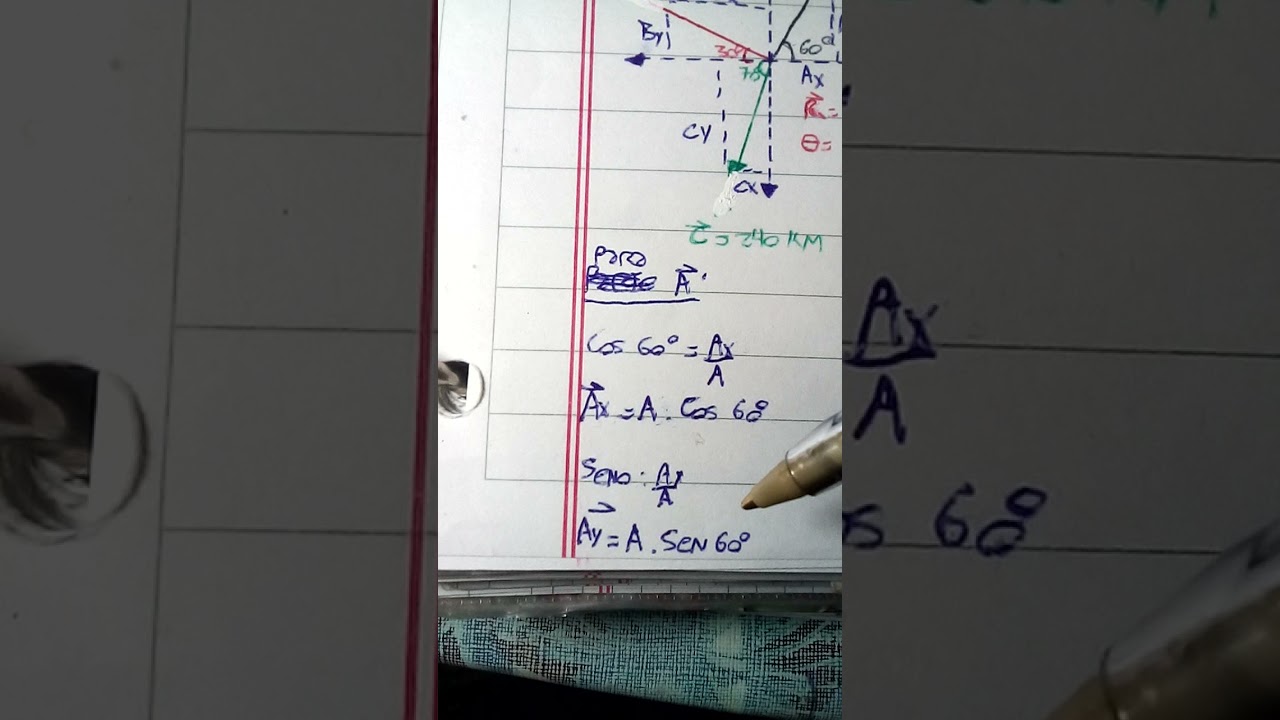 By
30°
60°
Ax
CY
R=
θ=
CX
C = 240 KM
Para
A
Cos 60° = Ax/A
Ax = A . Cos 60°
Seno : Ay/A
Ay = A . Sen 60°